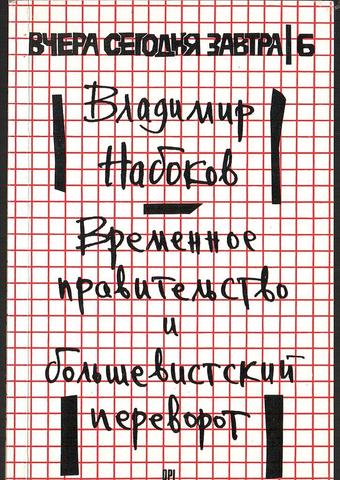 ВЧЕРА СЕГОДНЯ ЗАВТРА|6
Владимир
Набоков
Временное
правительство
и
большевистский
переворот
OPI